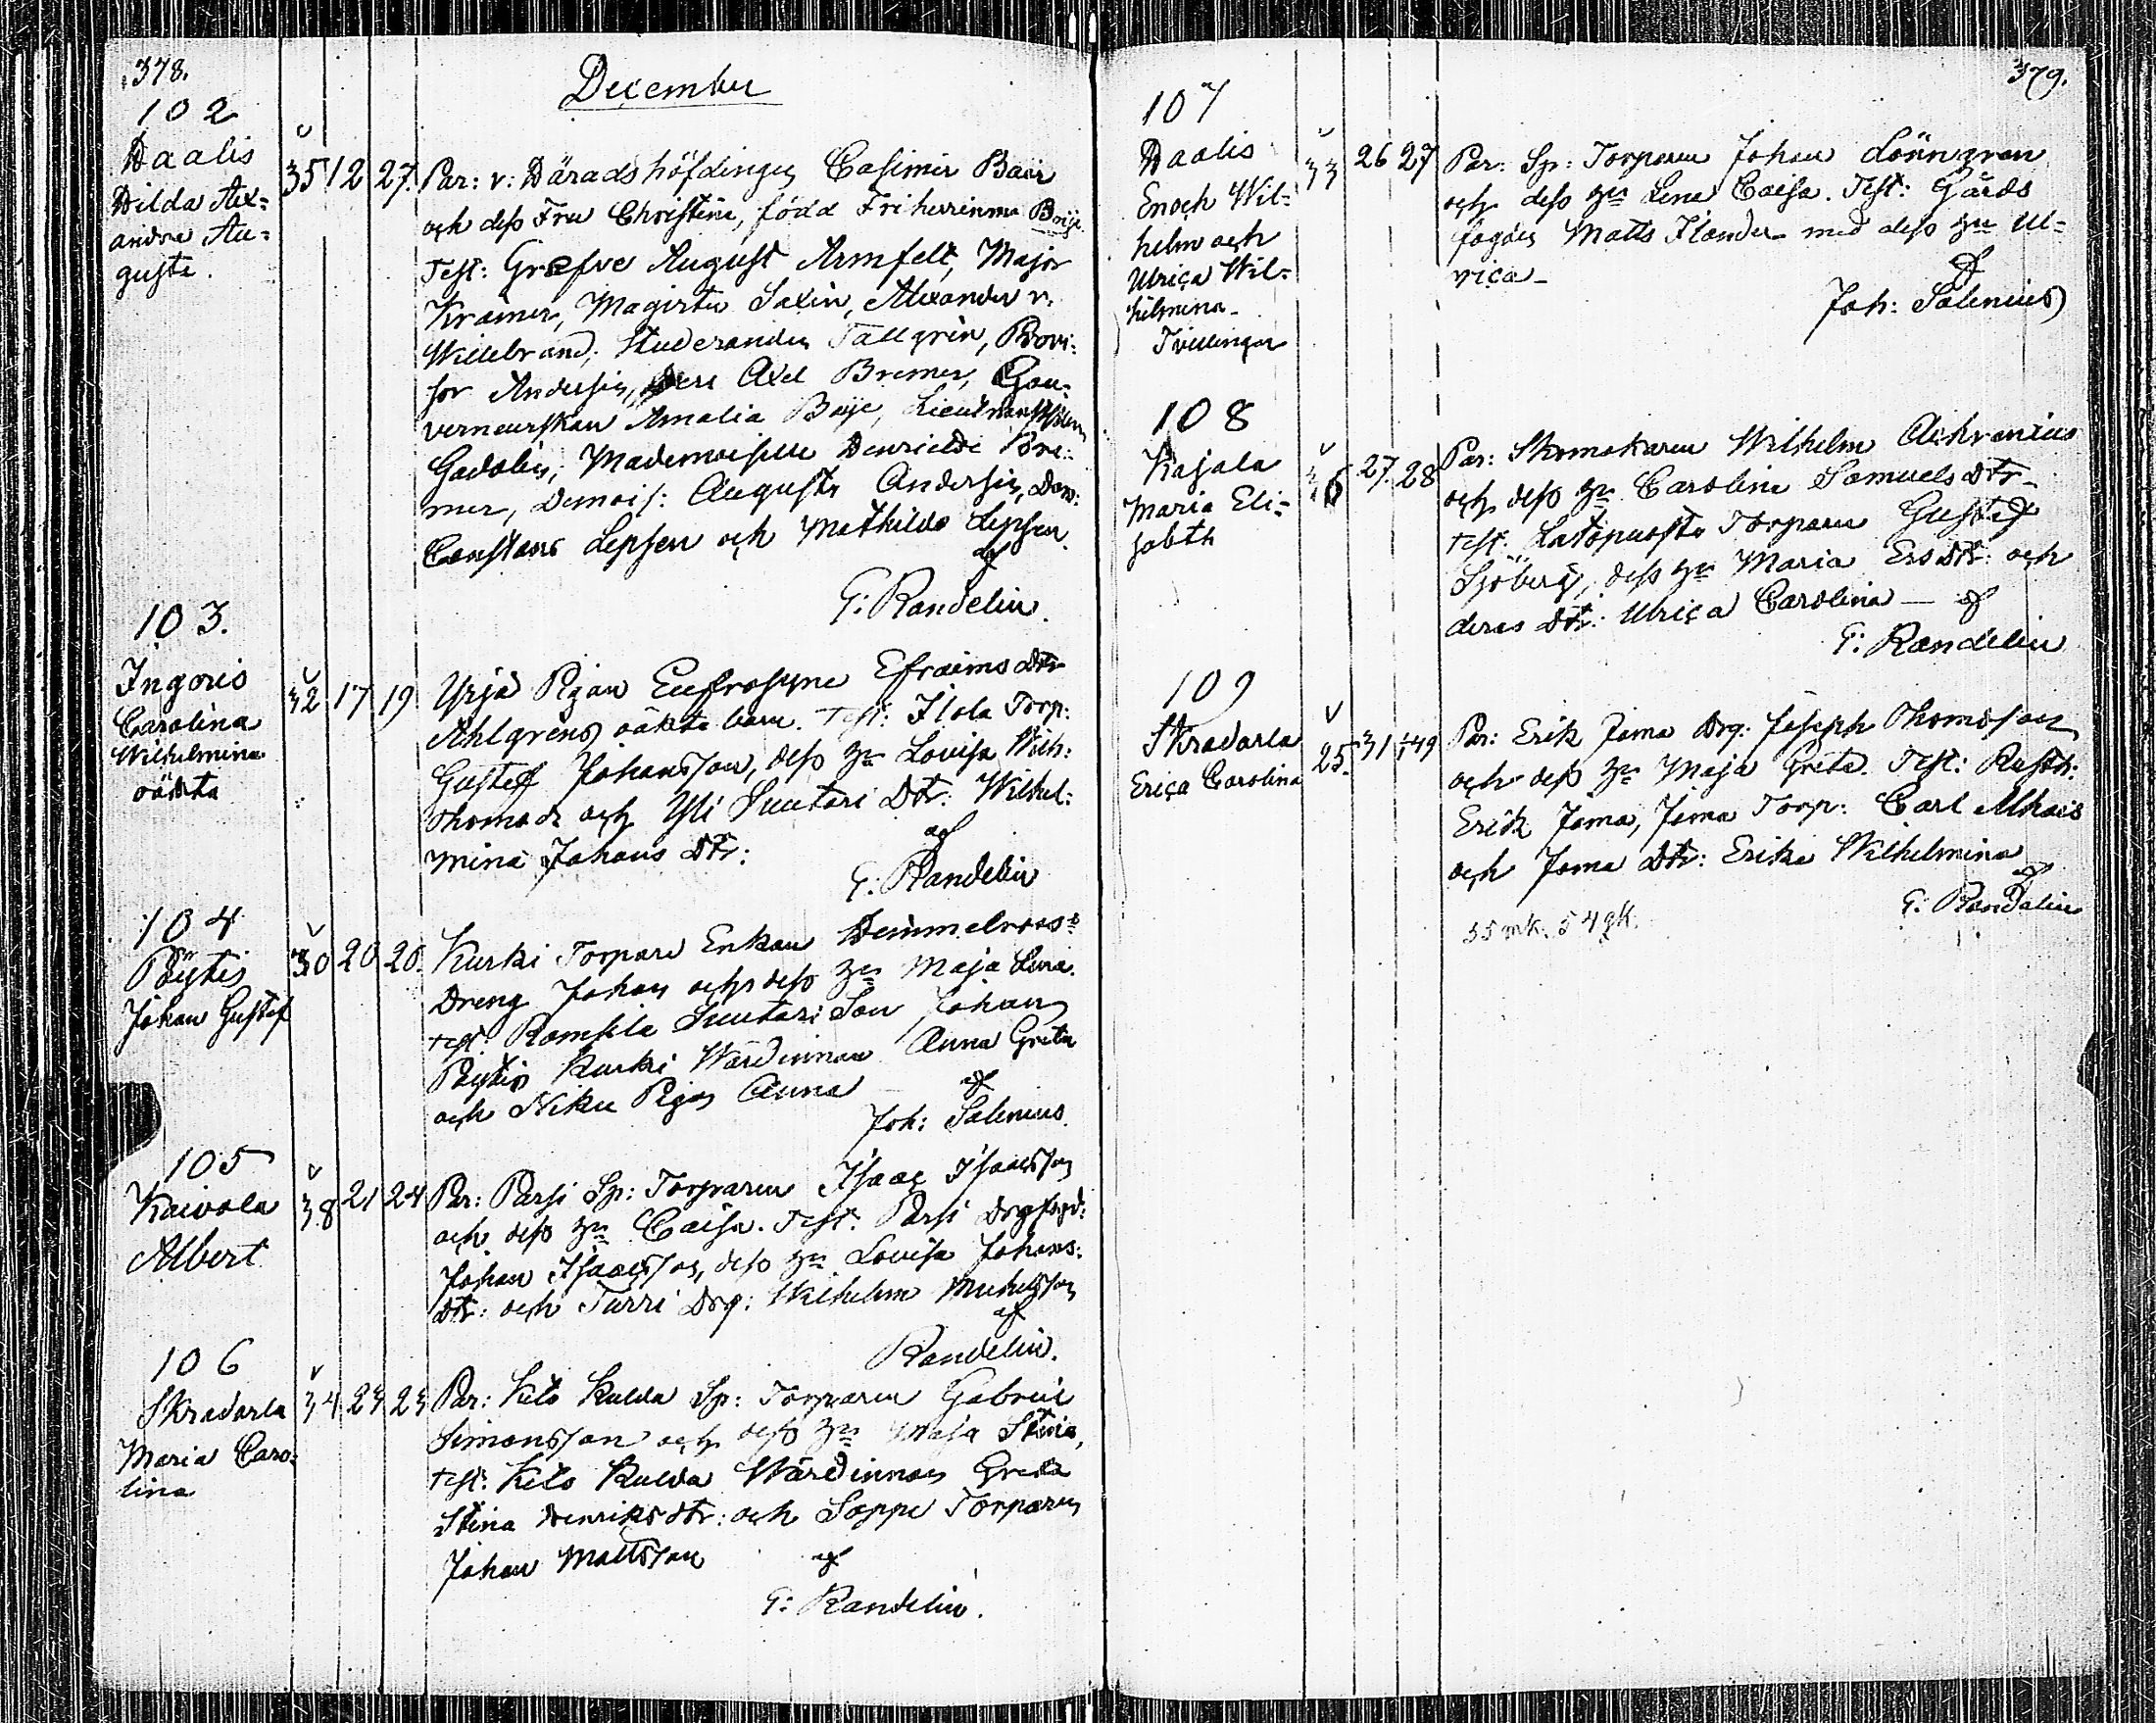 378.
December
102
Haalis
Hilda Alex=
andra Au=
gusta.
35 12 27.
Par: v: Häradshöfdingen Casimir Bair
och dess Fru Christina, född Friherrinna Boije
Test: Grefve August Armfelt, Major
Kræmer, Magister Salin, Alexander v.
Willebrand, Studeranden Tallgrén, Provi:
sor Andersin, Herr Axel Bremer, Gou=
verneurskan Amalia Boije, Lieutnantskan
Gadolin, Mademoiselle Henriette Bre:
mer, Demois: Augusta Andersin, Dem:
Constans Lepsen och Mathilda Lepsen.
af
G: Randelin.
103.
Ingoris
Carolina
Wilhelmina
oäkta
32 17 19
Yrjä Pigan Eufrosyne Efraims Dtr
Ahlgrens oäkta barn. Test: Ilola Torp:
Gustaf Johansson, dess hu Lovisa Wilh:
Thomas dr och Yli Suutari Dtr: Wilhel:
mina Johans Dtr:
af
G: Randelin
104
Pöytis
Johan Gustaf
30 20 26.
Kurki Torpare Enkan Himmelroos
Dreng Johan och dess hu Maja Lena.
Test: Ramsila Suutari Son Johan
Pöytis Kurki Wärdinnan Anna Greta
och Niku Pigan Anna
af
Joh: Salenius.
105
Kaivola
Albert
38 21 24
Par: Parsi Sp: Torparen Isaac Isaacsson
och dess hu Caisa. Test: Parsi
Johan Isaacsson, dess hu Lovisa Johans:
Dtr: och Turri Drg: Wilhelm Michelsson
af
Randelin.
106
Skradarla
Maria Caro=
lina
34 23 23
Par: Kilo Kulda Sp: Torparen Gabriel
Simonsson och dess hu Maja Stina,
Test: Kilo Kulda Wärdinnan Greta
Stina Henriks dtr: och Soppi Torparen
Johan Mattsson
af
G: Randelin.
379.
107
Haalis
Enoch Wil=
helm och
Ulrica Wil=
helmina
Tvillingar
33 26 27
Par: Sp: Torparen Johan Lönngren
och dess hu Lena Caisa. Test: Gårds
fogden Matts Ilander med dess hu Ul=
rica
af
Joh: Salenius
108
Kajala
Maria Eli=
sabeth
36 27. 28
Par: Skomakaren Wilhelm
och dess hu Carolina Samuels Dtr
Test: Latopuosta Torparen Gustaf
Sjöberg, dess hu Maria Ers Dtr: och
deras Dtr: Ulrica Carolina — af
G: Randelin
109
Skradarla
Erica Carolina
25. 31
Par: Erik Jama Drg: Joseph Thomasson
och dess hu Maja Greta. Test: Rusth:
Erik Jama, Jama Torp: Carl
och Jama Dtr: Erika Wilhelmina
af
G: Randelin
55 mk. 54 qk.